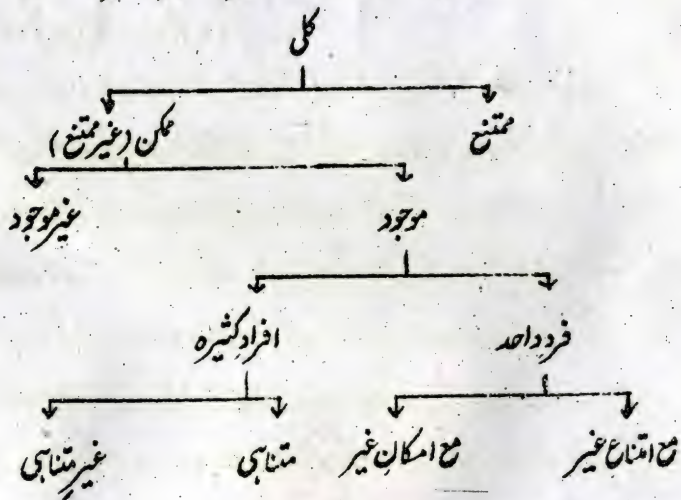 کلی
ممتنع ممکن (غیر ممتنع)
موجود غیر موجود
فرد واحد افراد کثیرہ
مع امتناع غیر مع امکان غیر متناہی غیر متناہی